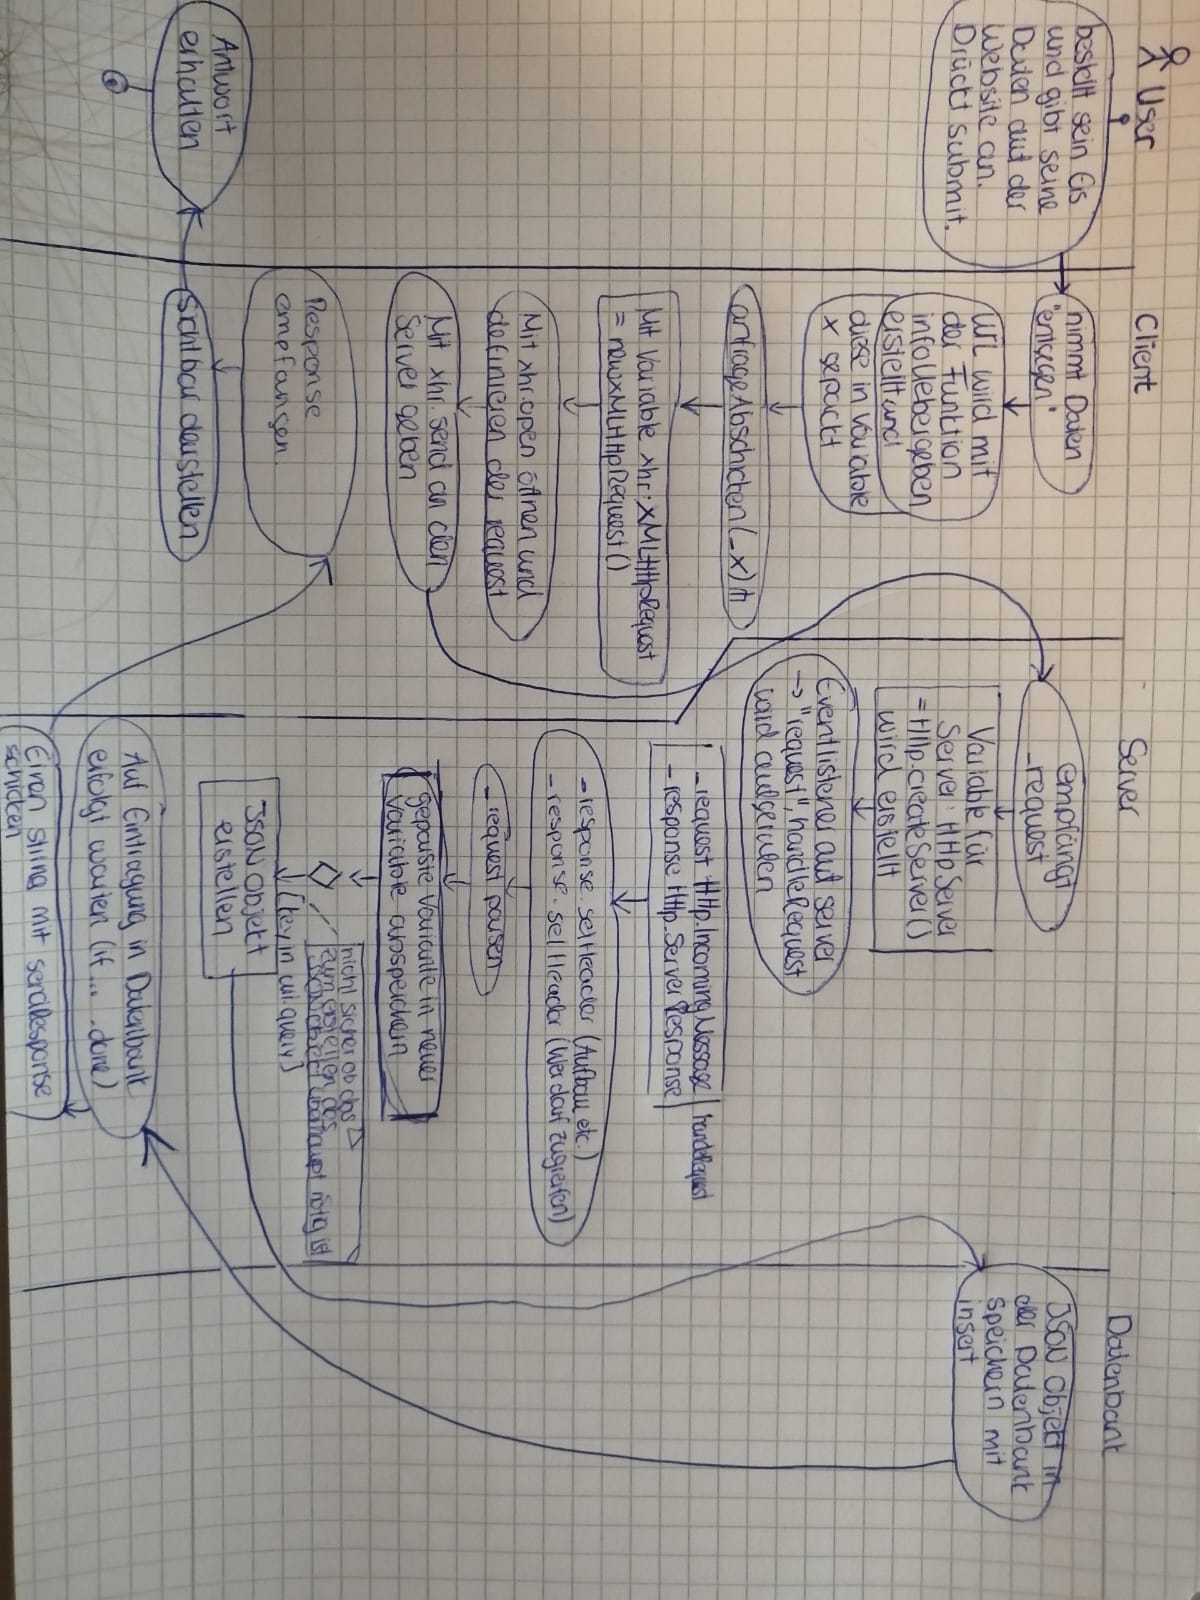 User
Client
Server
Datenbank
bestellt sein Eis
und gibt seine
Daten auf der
Website an.
Drückt submit.
nimmt Daten
"entgegen"
Url wird mit
der Funktion
infoUebergeben
erstellt und
diese in Variable
x gepackt
anfrageAbschicken(_x)
Mit Variable xhr:XMLHttpRequest
= newXMLHttpRequest()
Mit xhr.open öffnen und
definieren der request
Mit xhr.send an den
Server geben
Response
empfangen.
sichtbar darstellen
Antwort
erhalten
empfängt
_request
Variable für
Server: Http.Server
= Http.createServer()
wird erstellt
Eventlistener auf server
→ "request", handleRequest
wird aufgerufen
_request Http.IncomingMessage
handleRequest
_response Http.ServerResponse
_response.setHeader (Aufbau etc.)
_response.setHeader (Wer darf zugreifen)
_request parsen
geparste Variante in neuer
Variable abspeichern
nicht sicher ob das
zum erstellen des
JSON Objekt überhaupt nötig ist
[key in url.query]
JSON Objekt
erstellen
JSON Objekt in
der Datenbank
speichern mit
insert
Auf Eintragung in Datenbank
erfolgt warten (if... .done)
Einen string mit sendResponse
schicken